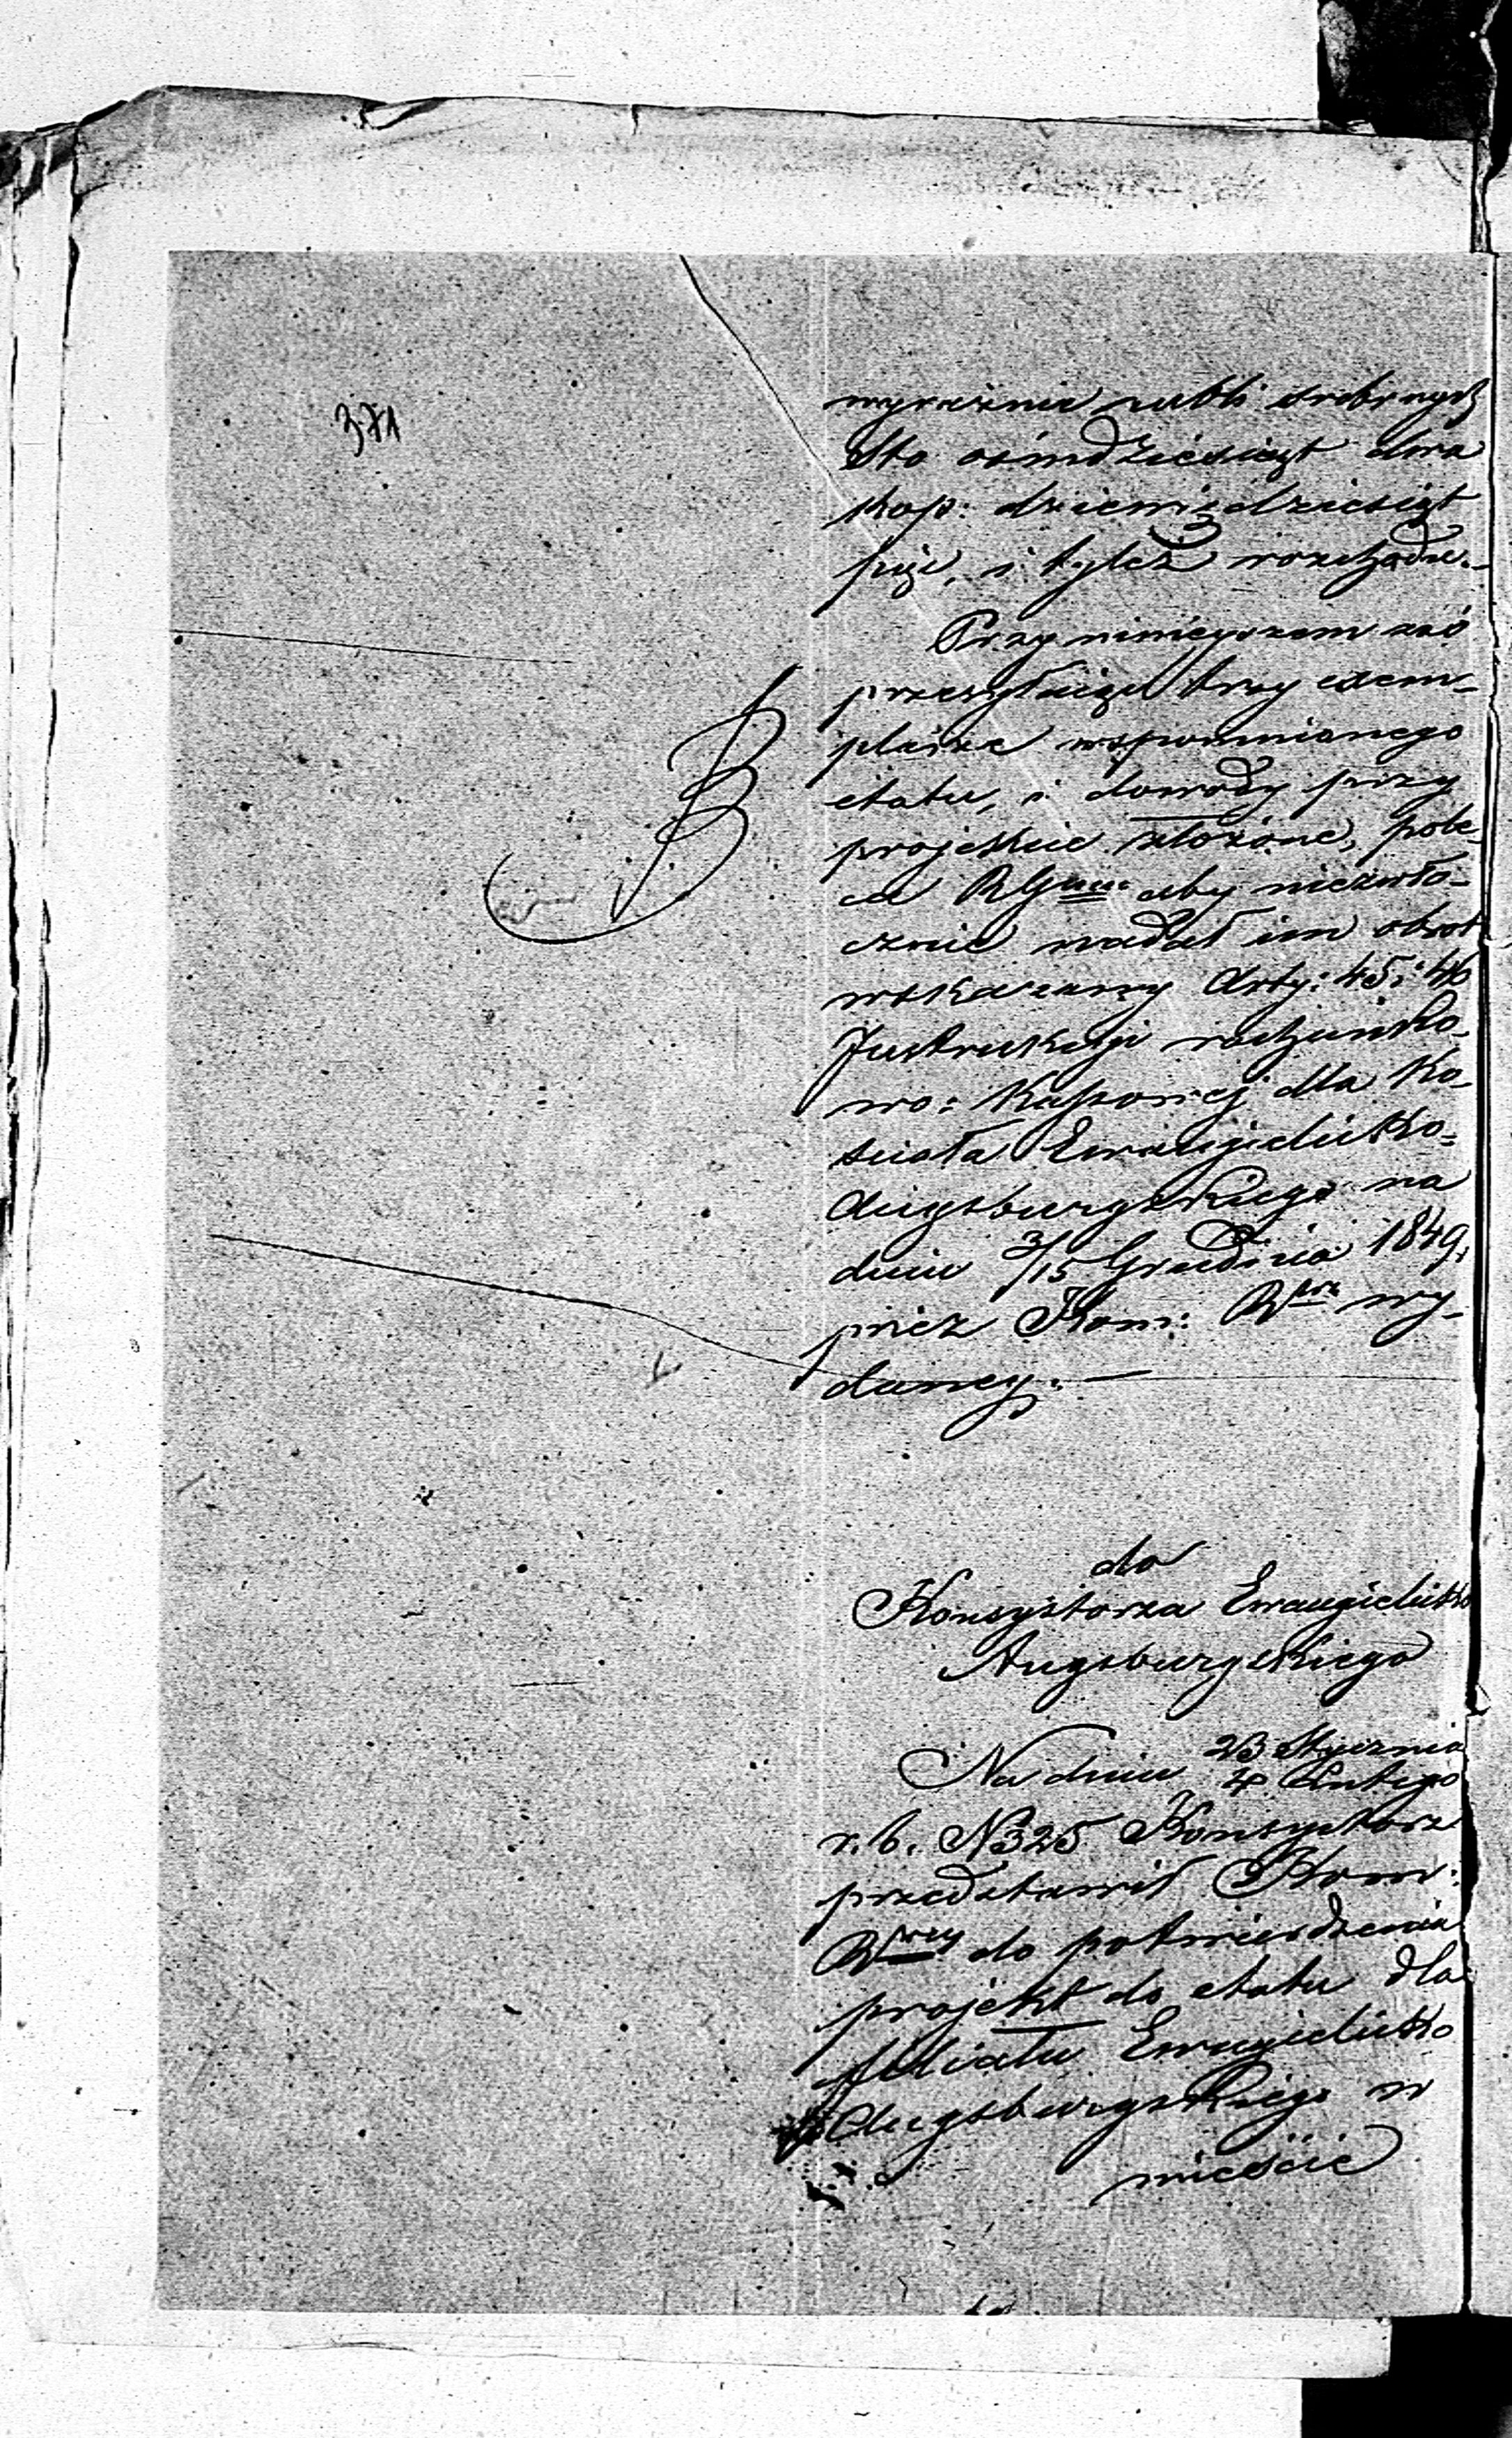 371
wyraźnie rubli srebrnych
Sto ośmdziesiąt dwa
kop: dziewiędziesiąt
pięć, i tyleż rozchodu.
Przy niniejszem zaś
przesyłając trzy exem-
plarze wspomnianego
etatu, i dowody przy
projekcie złożone, pole-
ca RGwu: aby niezwło-
cznie nadał im obrot
wskazany Arty: 45 i 46
Instrukcyi rachunko-
wo: Kassowej dla Ko-
scioła Ewangielicko-
Augsburgskiego na
dniu 3/15 Grudnia 1849,
przez Kom: Rwą wy-
daney. —
do
Konsystorza Ewangielicko
Augsburgskiego
Na dniu 23 Stycznia
4 Lutego
r. b. N 325 Konsystorz
przedstawił Kom:
Rwey do potwierdzenia
projekt do etatu dla
filiału Ewangielicko
Augsburgskiego w
mieście